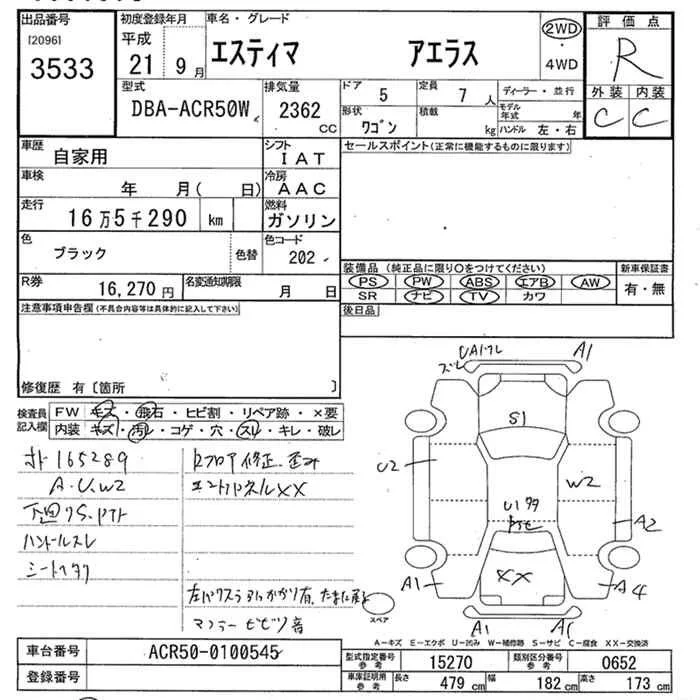 出品番号
[2096]
3533
初度登録年月
平成
21 9 月
車名・グレード
エスティマ アエラス
2WD
・
4WD
評価点
R
外装 内装
C C
型式
DBA-ACR50W
排気量
2362
CC
ドア 5
定員 7 人
ディーラー・並行
形状
ワゴン
積載
kg
モデル年式 年
ハンドル 左・右
車歴
自家用
シフト
IAT
セールスポイント(正常に機能するものに限ります)
車検
年 月( 日)
冷房
AAC
走行
16万5千290 km
燃料
ガソリン
色
ブラック
色替
色コード
202
R券
16,270円
名変通知期限
月 日
装備品 (純正品に限り○をつけてください)
PS PW ABS エアB AW
SR ナビ TV カワ
新車保証書
有・無
注意事項申告欄(不具合内容等は具体的に記入して下さい)
後日品
修復歴 有〔箇所 〕
検査員記入欄
FW キズ・飛石・ヒビ割・リペア跡・×要
内装 キズ・汚レ・コゲ・穴・スレ・キレ・破レ
165289
A.U.W2
ハンドルスレ
シートヘタリ
Rフロア修正、歪み
エンドパネルXX
マフラービビリ音
UA1ワレ
ズレ
A1
S1
U2
W2
U1
A2
A1
XX
A4
A1
スペア
A－キズ E－エクボ U－凹み W－補修跡 S－サビ C－腐食 XX－交換済
車台番号
ACR50-0100545
登録番号
型式指定番号参考 15270
類別区分番号参考 0652
車庫証明用参考 長さ 479 cm 幅 182 cm 高さ 173 cm